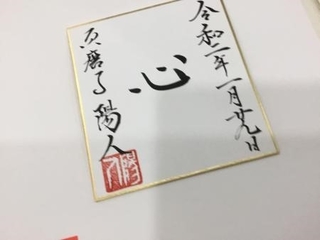 令和二年一月廿九日
心
須磨乃陽人